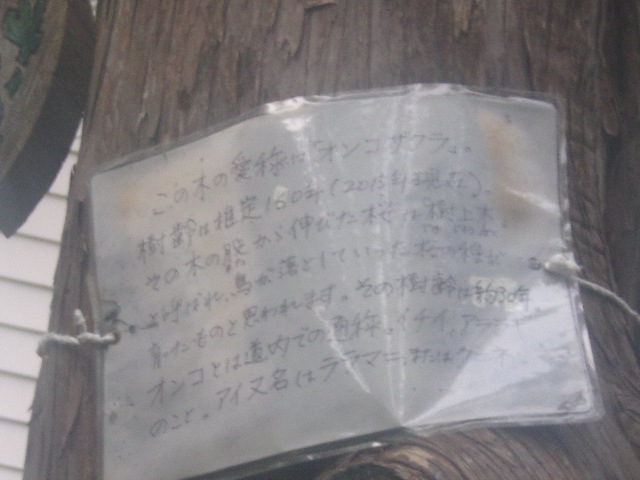 この木の愛称は「オンコザクラ」。
樹齢は推定160年(2015年現在)。
その木の股から伸びた桜は「樹上木」
と呼ばれ、鳥が落としていった桜の種が
育ったものと思われます。その樹齢は約30年
オンコとは道内での通称、イチイ、アララギ
のこと。アイヌ名はララマニ、またはクネニ